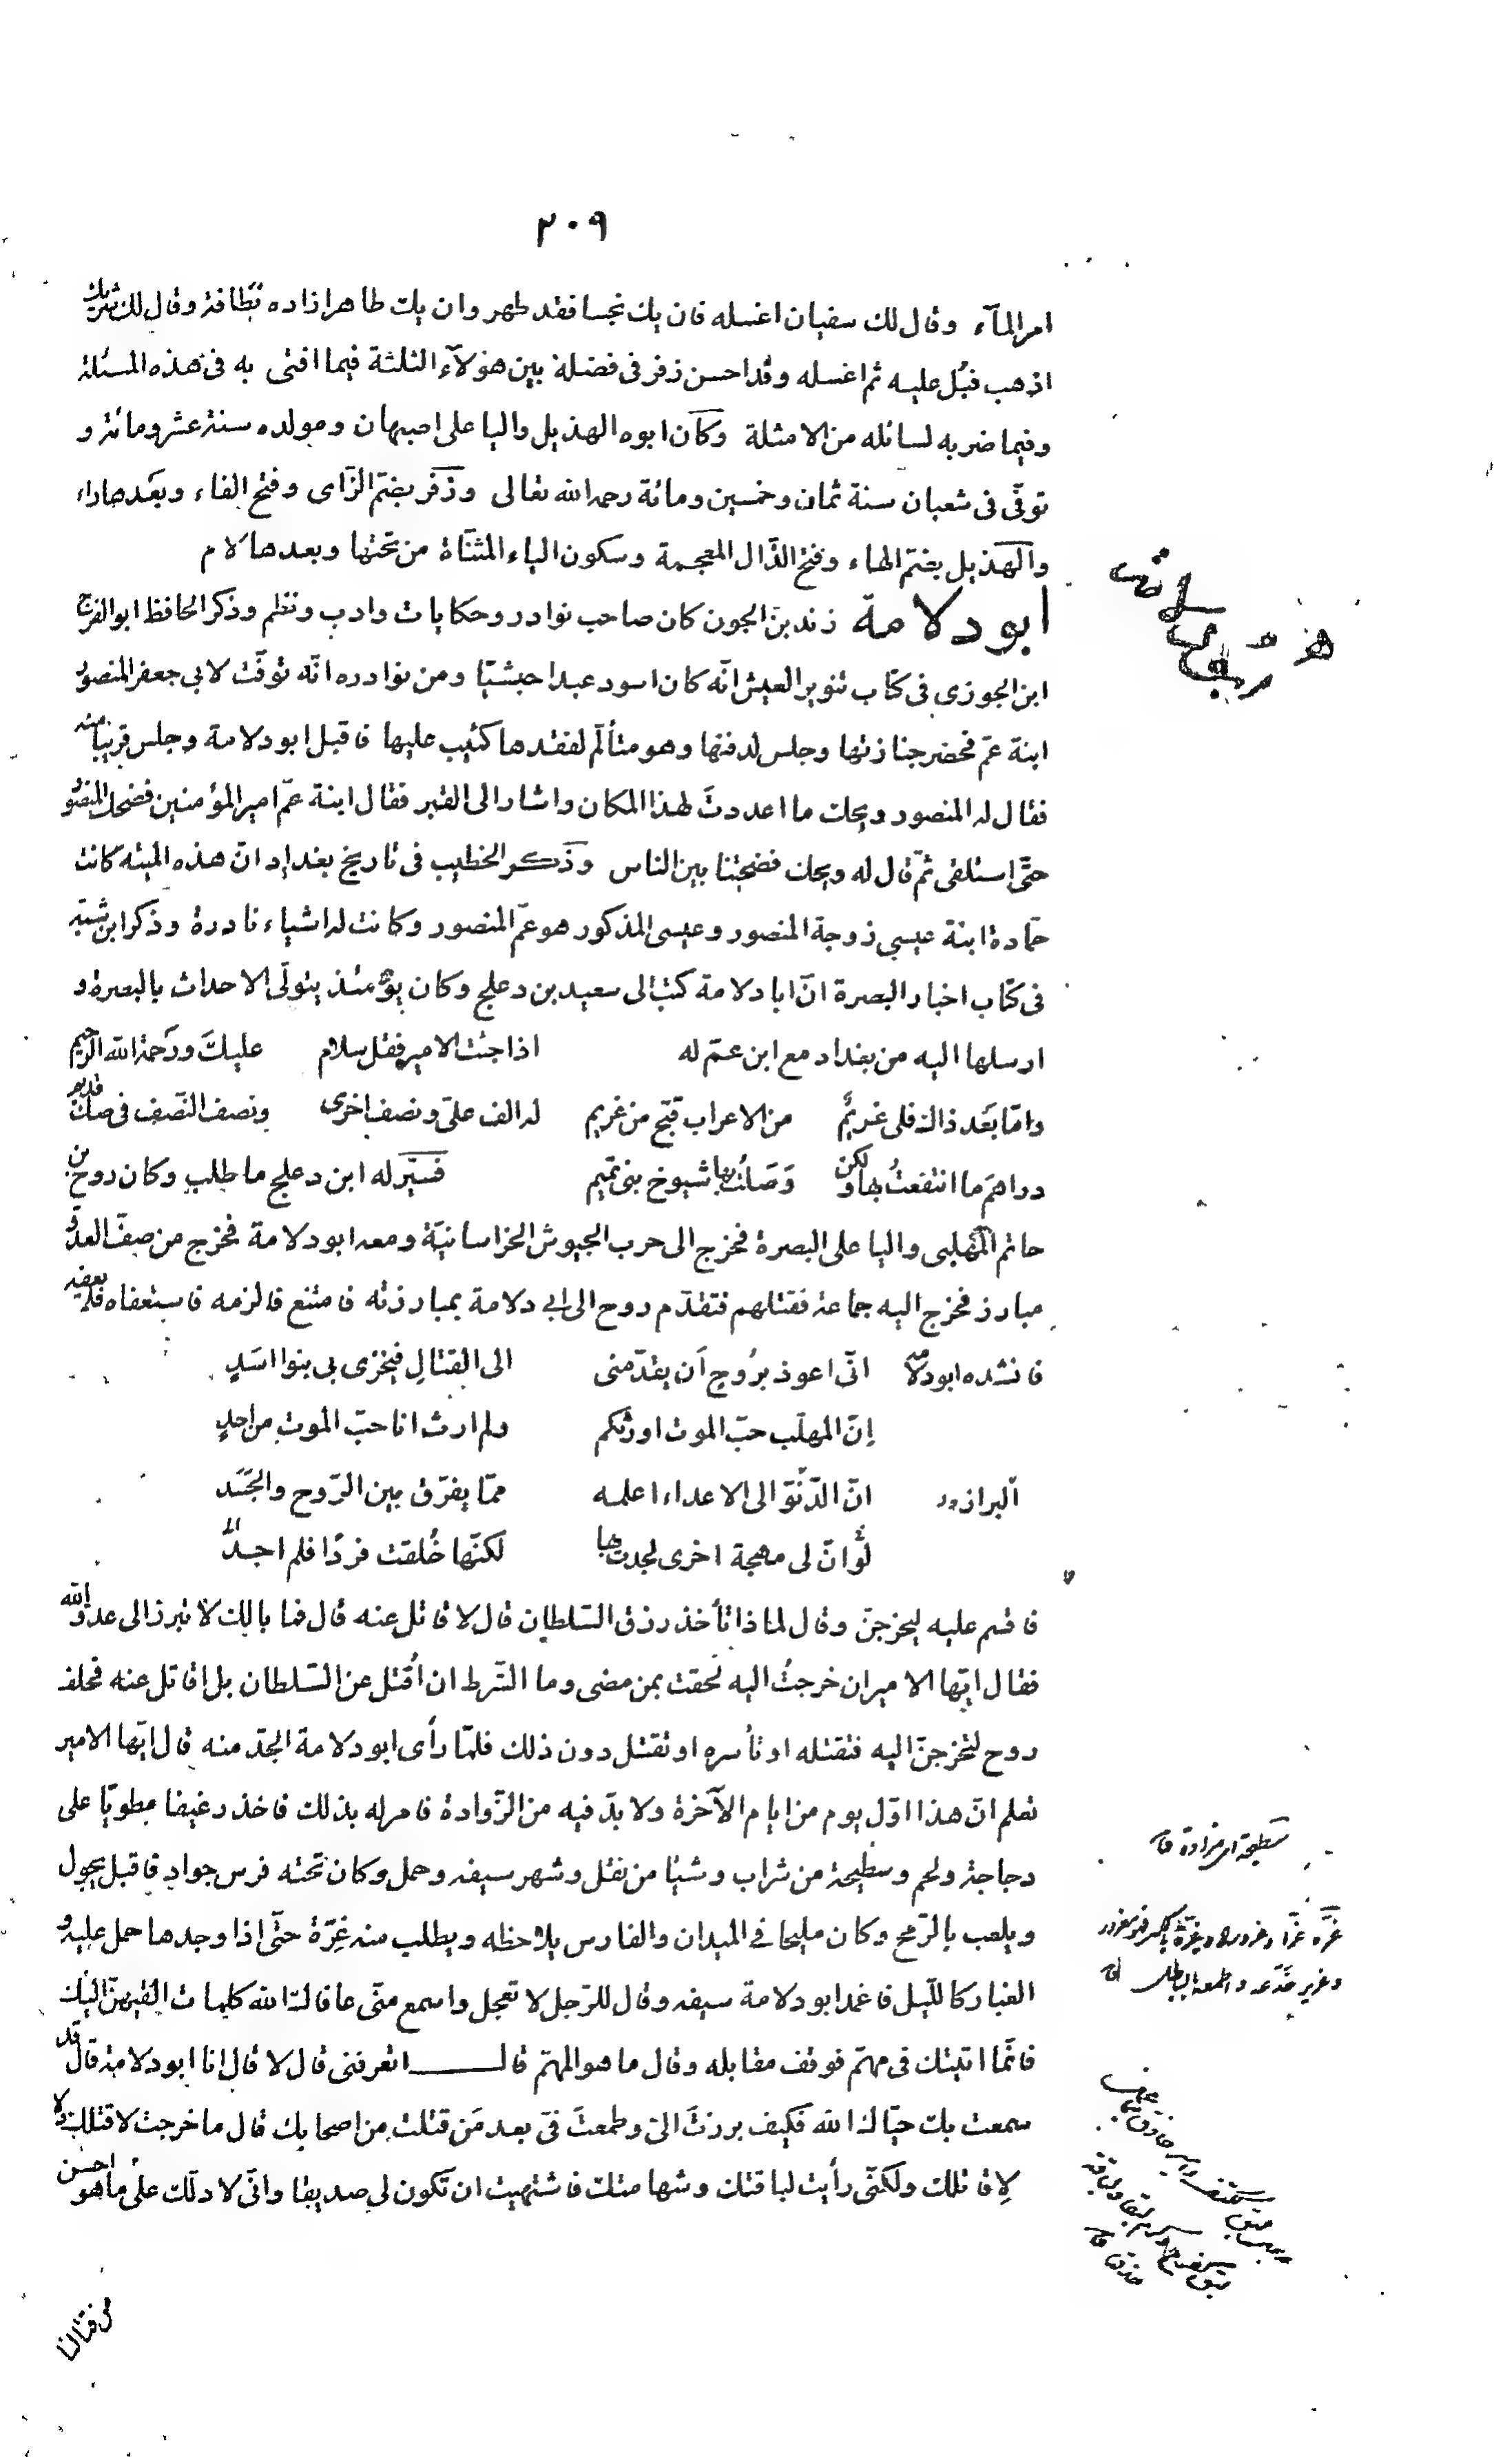 ٢٠٩
امر المآء وقال لك سفيان اغسله فان يك نجسا فقد طهر وان يك طاهرا زاده نظافة وقال لك شريك
اذهب فبُل عليه ثم اغسله وقد احسن زفر فى فضله بين هؤلآء الثلثة فيما افتى به فى هذه المسئلة
وفيما ضربه لسائله من الامثلة وكان ابوه الهذيل واليا على اصبهان ومولده سنة عشر ومائة و
توفّى فى شعبان سنة ثمان وخمسين ومائة رحمه الله تعالى وزفر بضمّ الزّاى وفتح الفاء وبعدها راء
والهذيل بضمّ الهاء وفتح الذّال المعجمة وسكون الياء المثنّاة من تحتها وبعدها لام
ابو دلامة زند بن الجون كان صاحب نوادر وحكايات وادب ونظم وذكر الحافظ ابو الفرج
ابن الجوزى فى كتاب تنوير الغبش انّه كان اسود عبدا حبشيّا ومن نوادره انّه توفّت لابى جعفر المنصور
ابنة عمّ فحضر جنازتها وجلس لدفنها وهو متألّم لفقدها كئيب عليها فاقبل ابو دلامة وجلس قريبا منه
فقال له المنصور ويحك ما اعددتَ لهذا المكان واشار الى القبر فقال ابنة عمّ امير المؤمنين فضحك المنصور
حتّى استلقى ثمّ قال له ويحك فضحتنا بين الناس وذكر الخطيب فى تاريخ بغداد انّ هذه الميّته كانت
حمّادة ابنة عيسى زوجة المنصور وعيسى المذكور هو عمّ المنصور وكانت له اشياء نادرة وذكر ابن شبّه
فى كتاب اخبار البصرة انّ ابا دلامة كتب الى سعيد بن دعلج وكان يومئذ يتولّى الاحداث بالبصرة و
ارسلها اليه من بغداد مع ابن عمّ له اذا جئت الامير فقل سلام عليكَ ورَحمة الله الرحيم
وامّا بَعَد ذاك فلى غريمٌ من الاعراب قبّح من غريم له الف علىّ ونصف اخرى ونصف النّصف فى صكّ قديم
دراهمَ ما انتفعتُ بها ولكن وَصَلتُ بها شيوخ بنى تميم فسيّر له ابن دعلج ما طلب وكان روح بن
حاتم المهلّبى واليا على البصرة فخرج الى حرب الجيوش الخراسانيّة ومعه ابو دلامة فخرج من صفّ العدوّ
مبارز فخرج اليه جماعة فقتلهم فتقدّم روح الى ابى دلامة بمبارزته فامتنع فالزمه فاستعفاه فلم يعفه
فانشده ابو دلامة انّى اعوذ برُوحٍ اَن يقدّمنى الى القتالِ فيخزى بى بنوا اسَدٍ
اِنّ المهلّب حبّ الموت اورثكم ولم ارث انا حبّ الموت من احدٍ
البراز انّ الدّنوّ الى الاعداء اعلمه ممّا يفرّق بين الرّوح والجَسَد
لوانّ لى مهجة اخرى لجدت بها لكنّها خُلقت فردًا فلم اجد
فاقسم عليه ليخرجنّ وقال لماذا تأخذ رزق السّلطان قال لاقاتل عنه قال فما بالك لا تبرز الى عدوّ الله
فقال ايّها الامير ان خرجتُ اليه لحقت بمن مضى وما الشّرط ان اُقتل عن السّلطان بل اقاتل عنه فحلف
روح لتخرجنّ اليه فتقتله او تأسره او تقتل دون ذلك فلمّا رأى ابو دلامة الجدّ منه قال ايّها الامير
تعلم انّ هذا اوّل يوم من ايام الآخرة ولا بدّ فيه من الزّوادة فامر له بذلك فاخذ رغيفا مطويّا على
دجاجة ولحم وسطيحة من شراب وشيئا من نقل وشهر سيفه وحمل وكان تحته فرس جواد فاقبل يجول
ويلعب بالرّمح وكان مليحا فى الميدان والفارس يلاحظه ويطلب منه غِرّة حتّى اذا وجدها حمل عليه و
الغبار كاللّيل فاغمد ابو دلامة سيفه وقال للرّجل لا تعجل واسمع منّى عافاك الله كليمات القيهنّ اليك
فانّما اتيتك فى مهمّ فوقف مقابله وقال ما هو المهمّ قال اتعرفنى قال لا قال انا ابو دلامة قال قد
سمعت بك حيّاك الله فكيف برزتَ الىّ وطمعتَ فىّ بعد مَن قتلت من اصحابك قال ما خرجت لاقتلك ولا
لِاقاتلك ولكنّى رأيت لباقتك وشهامتك فاشتهيت ان تكون لى صديقا وانّى لادلّك على ما هو احسن
من قتالنا
سطيحة اى مزادة